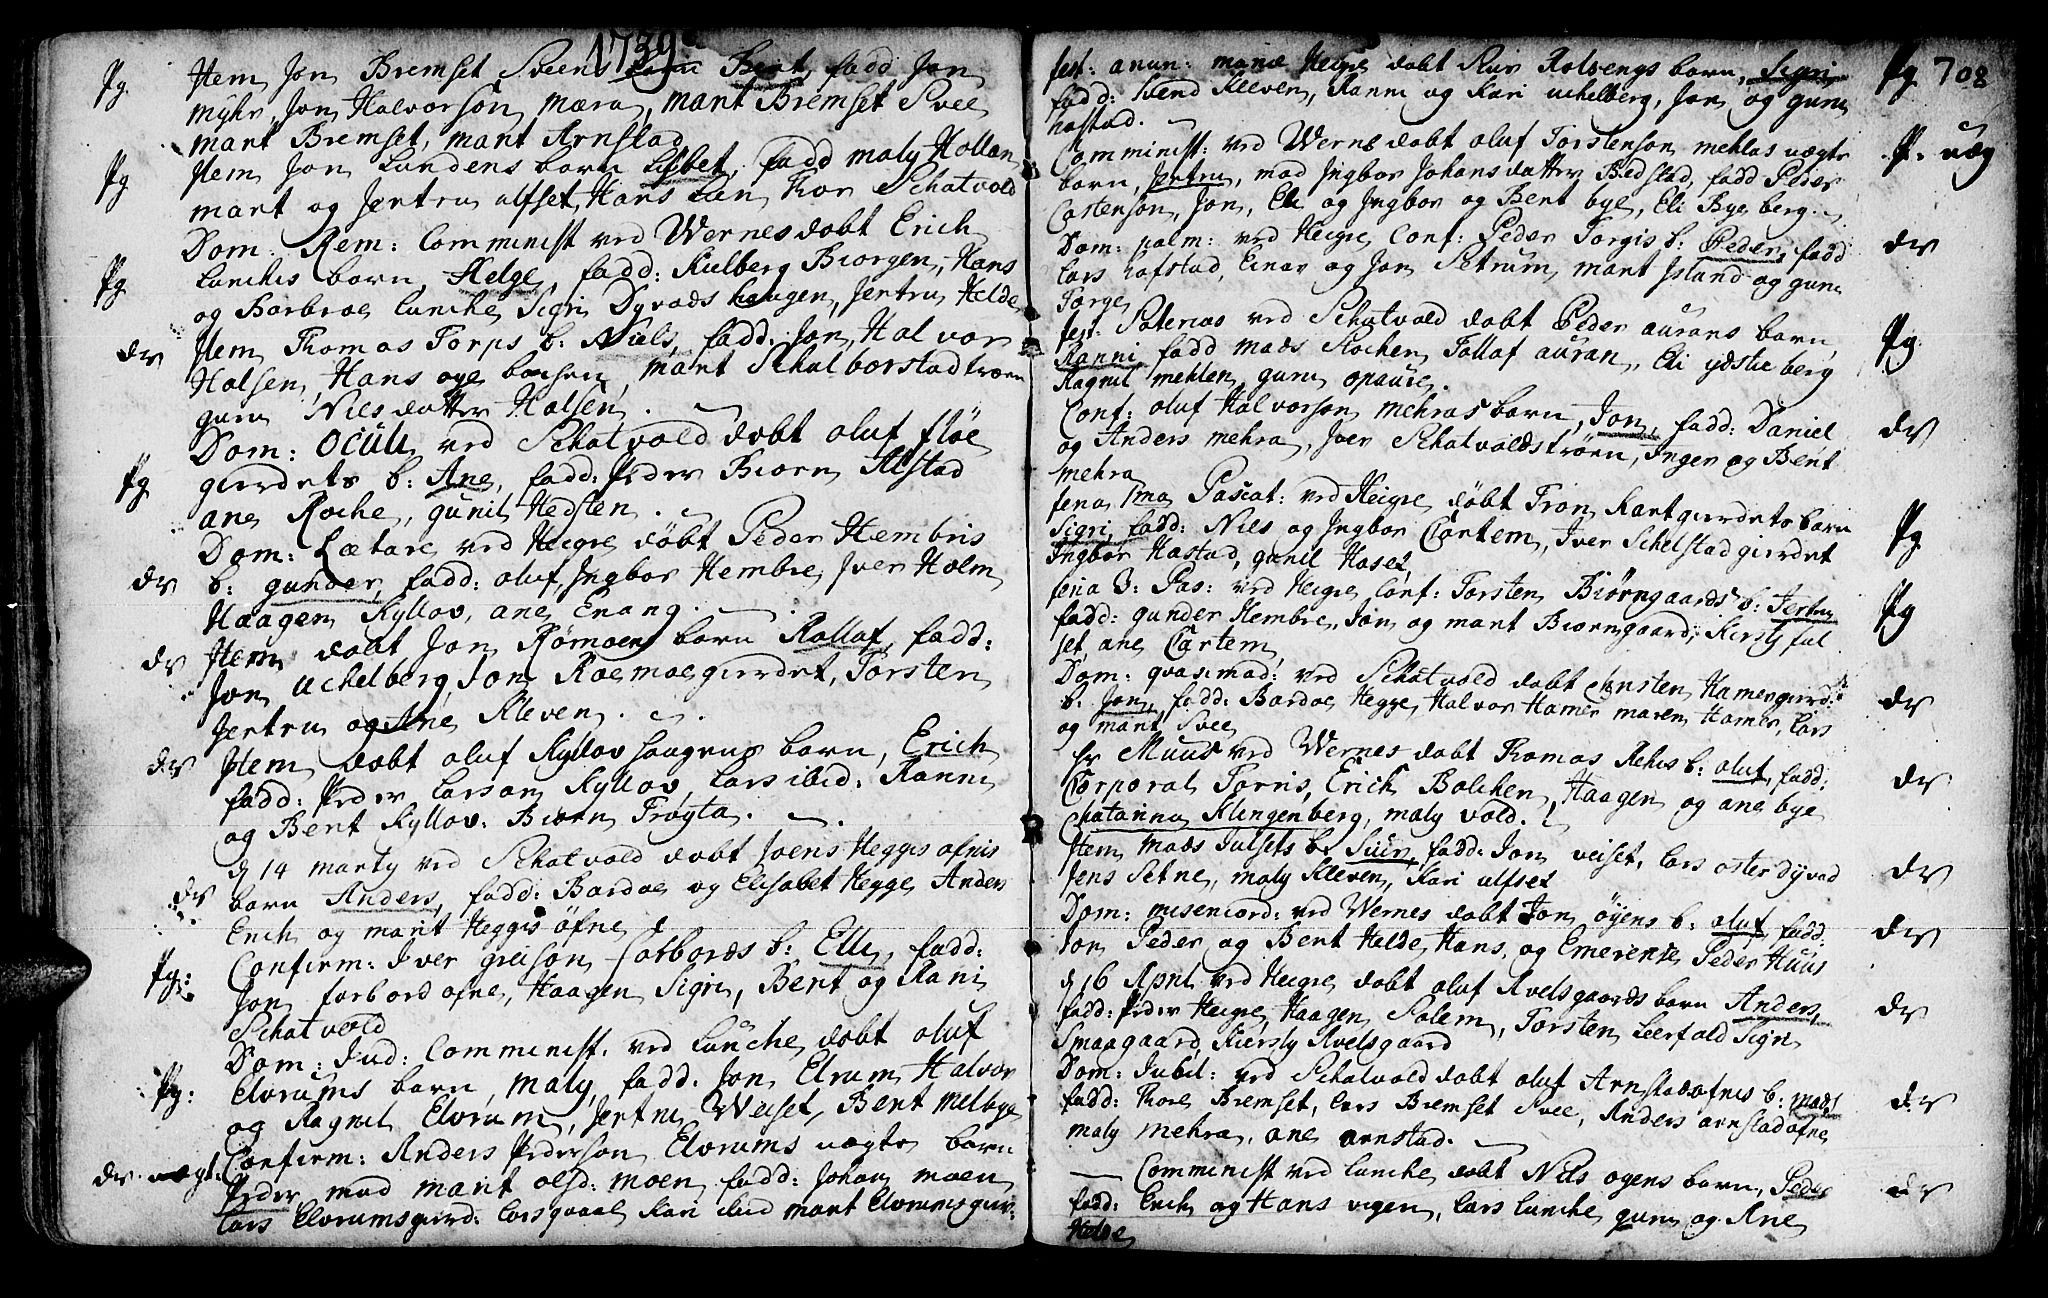 1739
Pg Item Jon Bremset Sveens barn Berit, fadd Jon
myhr, Jon Halvorson mæra, marit Bremset Svee
marit Bremset, marit Arnstad
Pg Item Jon Lundens barn Lisbet, fadd maly Hollan
marit og Jertru ulfset, Hans Lan Thor Schatvold
Dom: Rem: Comminist ved Wernes dobt Erich
Pg Lunchis barn Helge, fadd: Kulberg Biorgen, Hans
og Barbroe Lunche, Sigri Dyvads haugen, Jertru Helde
dr Item Thomas Torps b: Niels, fadd: Jon, Halvor
Halsen, Hans oye, marit Schulborstadtrøen
guru Nielsdatter Halsen.
Dom: Oculi ved Schatvold dobt oluf fløe
Pg gierdets b: Ane, fadd: Peder Biorn Alstad
ane Roche, gunil Hedsten.
Dom: Lætare ved Heigre döbt Peder Hembris
dr b: gunder, fadd: oluf, Ingbor Hembre, Iver Holm
Haagen Kyllov, ane Enang.
dr Item dobt Jon Römoens barn Rollaf, fadd:
Jon uchelberg, Jon Roemoegierdet, Torsten
Jertru og Ane Kleven.
dr Item dobt oluf Kyllovhaugens barn, Erich
fadd: Peder Larson Kyllov, Lars ibid: Ranni
og Berit Kyllov. Biørn Trøyta.
d 14 marty ved Schatvold dobt Joens Heggis öfnis
dr barn Anders, fadd: Bardoe og Elisabet Hegge, Anders
Erich og marit Heggis öfne
Pg: Confirm: Iver greison forbords b: Elli, fadd:
Jon forbord ofne, Haagen Sigri, Berit og Rani
Schatvold
Dom: Jud: Comminist. ved Lunche dobt oluf
Pg: Elvrums barn, maly, fadd. Jon Elvrum Halvor
og Ragnil Elvrum, Jertru Weiset, Berit Melbye
dr. uægt. Confirm: Anders Pederson Elvrums uægte barn
Peder med marit olsd: moen fadd: Johan moen
Lars Elvrumsgierd: Kari ibid marit Elvrumsgier:
708
fest: anun: mariæ Heigre dobt Siur Rolsengs barn, Sigri Pg
fadd: Svend Kleven, Ranni og Kari uchelberg, Jon og guru
hastad.
Comminist: ved Wernes dobt oluf Torstenson mehlas uægte P. uæg
barn, Jertru, med Ingbor Johansdatter Bedstad, fadd Peder
Carstenson, Jon, Eli og Ingbor og Berit bye, Eli Bye berg.
Dom: palm: ved Heigre Conf: Peder Torgis b: Peder, fadd dr
Lars Hofstad, Einar og Jon Setrum, marit Island og guru
Torge
fer: ved Schatvold dobt Peder aurans barn, Pg.
Ranni fadd mads Rochen Tollaf auran, Eli ydstie berg
Ragnil mehlen, guru opaure.
Conf: oluf Halvorson mehras barn, Jon, fadd: Daniel dr
og Anders mehra, Iver Schatvoldstrøen, Inger og Berit
mehra
feria 1ma Pascat: ved Heigre döbt Tron Rantgierdets barn
Sigri, fadd: Niels og Ingbor Cartem, Iver Schelstadgierdet Pg
Ingbor Hastad, gunil Hoset
feria 3. Pas: ved Heigre Conf: Torsten Biørngaards b: Jertru Pg
fadd: gunder Hembre, Jon og marit Biorngaard, Kirsty ful
set, ane Cartem
Dom: quasimod: ved Schatvold dobt Chrsten Hamergierd: dr
b: Jon, fadd: Bardoe Hegge, Halvor Hamer maren Hamer, Lars
og marit Svee
Hr Muus ved Wernes dobt Thomas Rehis b: oluf, fadd: dr
Corporal Tornis, Erich Balchen, Haagen og ane bye
Chatarina Klingenberg, maly vold.
Item mads Julsets b. Siur, fadd: Jon veiset, Lars osterdyvad dr
Jens Setne, maly Kleven, Kari ulfset
Dom: misericord: ved Wernes dobt Jon öyens b: oluf, fadd: dr
Jon Peder og Berit Helde, Hans, og Emerense, Peder Huus
d 16 April ved Heigre dobt oluf Avelsgaards barn Anders, dr
fadd: Peder Heigre, Haagen Salem, Torsten Leerfald Sigri
Smaagaard, Kiersty Avelsgaard
Dom: Jubil: ved Schatvold dobt oluf Arnstadofnis b: mads dr
fadd: Thore Bremset, Lars Bremset Svee, Anders arnstadofne
maly mehra, ane arnstad.
Comminist ved Lunche dobt Nils ogens barn, Peder dr
fadd: Erich og Hans vigen, Lars Lunche guru og Ane
Helde